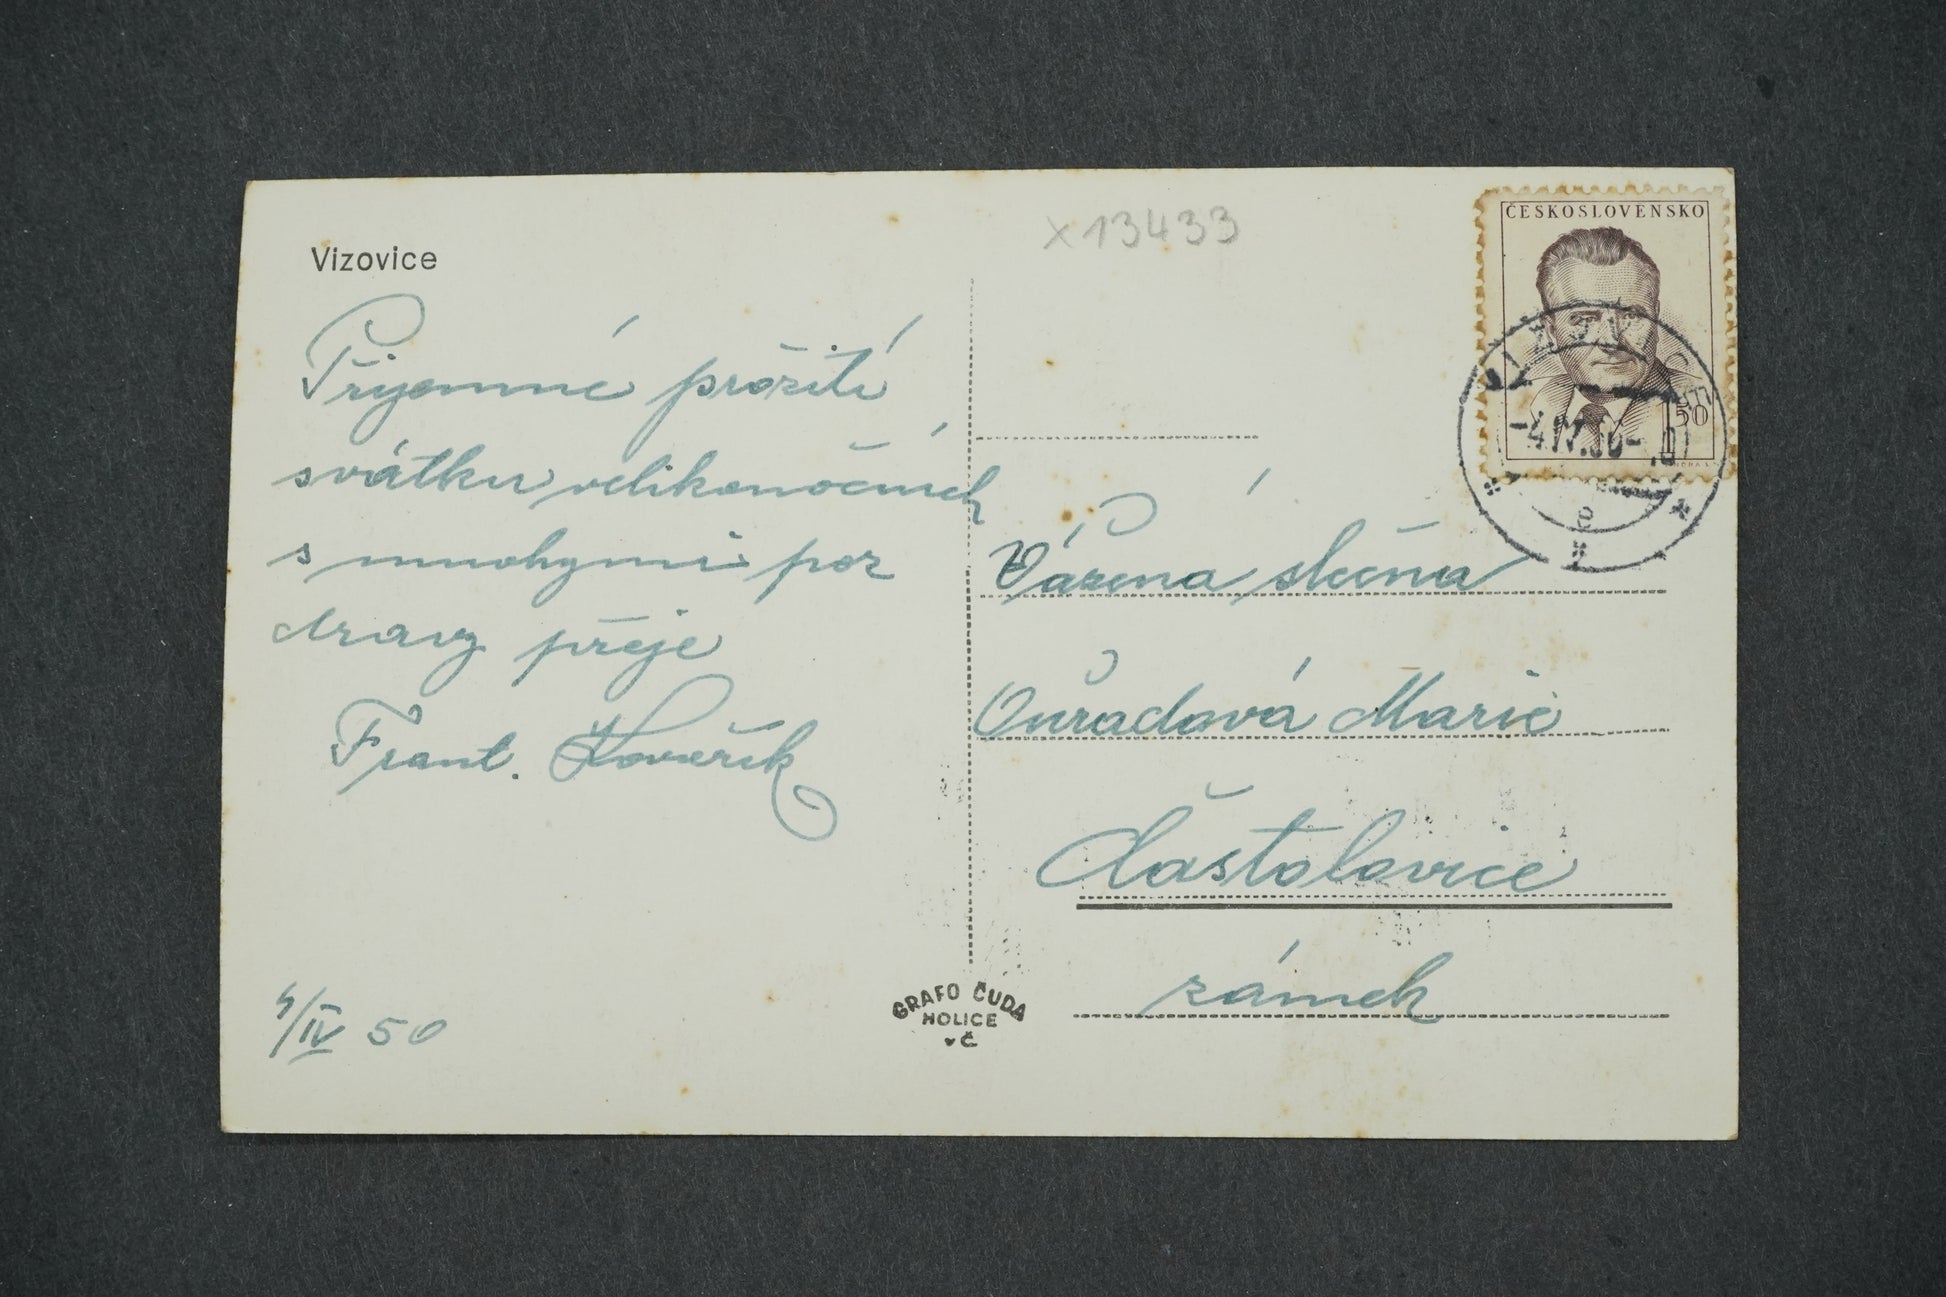 Vizovice
Příjemné prožití
svátků velikonočních
s mnohymi poz
dravy přeje
Frant.
4/IV 50
x13433
ČESKOSLOVENSKO
1 50
VIZOVICE
-4.IV.50-
Vážená slečna
Ouřadová Marie
Častolovice
zámek
GRAFO ČUDA
HOLICE
v Č